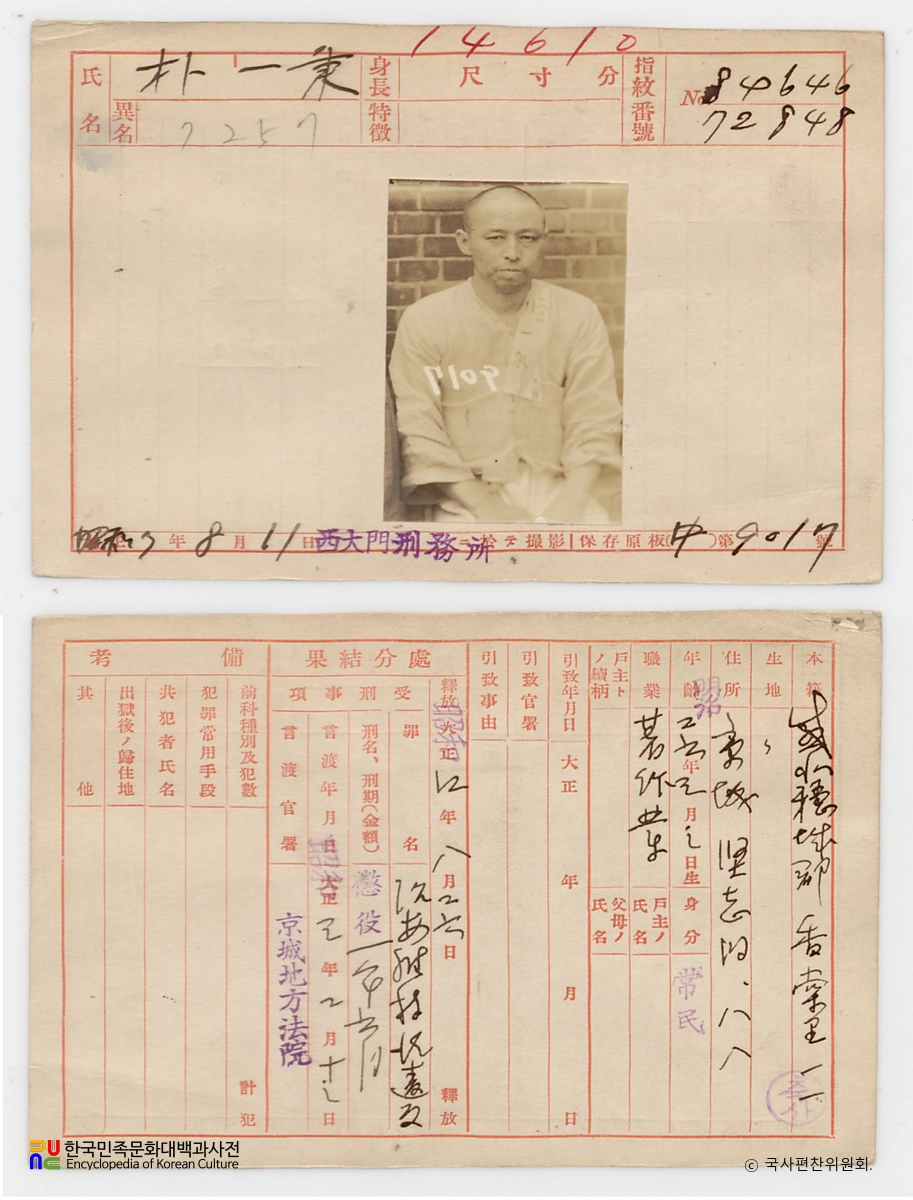 14610
氏名
朴一秉
異名
7257
身長
尺 寸 分
特徵
指紋番號
No. 84646
72848
9017
昭和 7 年 8 月 11 日 西大門刑務所ニ於テ撮影 保存原板(中)第 9017 號
本籍
咸北穩城郡
生地
住所
京城堅志洞八八
年齡
年 月 日生
身分
常民
職業
著作業
戶主トノ續柄
戶主ノ氏名
父母ノ氏名
引致年月日
大正 年 月 日
引致官署
引致事由
處分結果
釋放
昭和
大正 年 八月二六日
釋放
受刑事項
罪名
治安維持法違反
刑名、刑期(金額)
懲役一年六月
言渡年月日
昭和
大正 年 月 日
言渡官署
京城地方法院
備考
前科種別及犯數
計 犯
犯罪常用手段
共犯者氏名
出獄後ノ歸住地
其他
한국민족문화대백과사전
Encyclopedia of Korean Culture
© 국사편찬위원회.